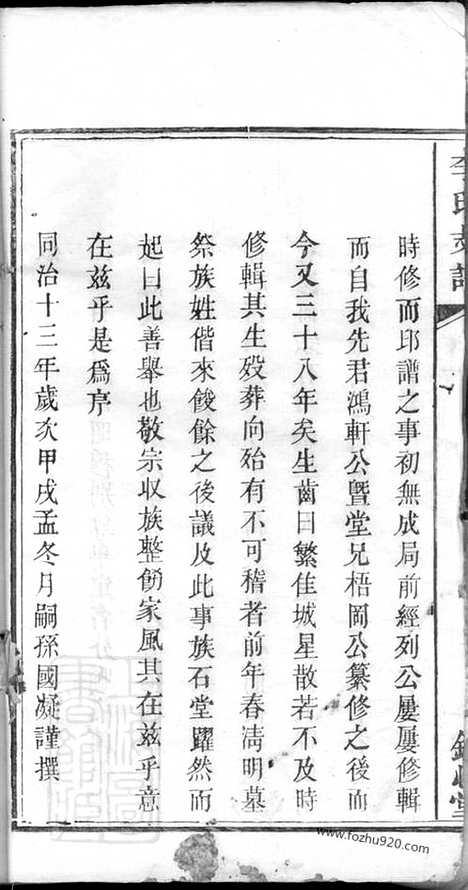 時修而邱譜之事初無成局前經列公屢屢修輯
而自我先君鴻軒公暨堂兄梧岡公纂修之後而
今又三十八年矣生齒日繁佳城星散若不及時
修輯其生殁葬向殆有不可稽者前年春淸明墓
祭族姓偕來餕餘之後議及此事族石堂躍然而
起曰此善舉也敬宗收族整飭家風其在兹乎意
在兹乎是爲序
同治十三年歲次甲戌孟冬月嗣孫國凝謹撰
www.fozhu920.com